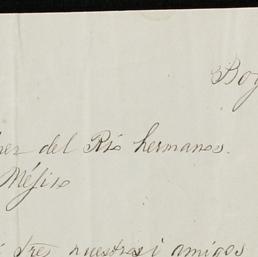 Bog
del Rio hermanos.
Méjico
tres nuestros i amigos